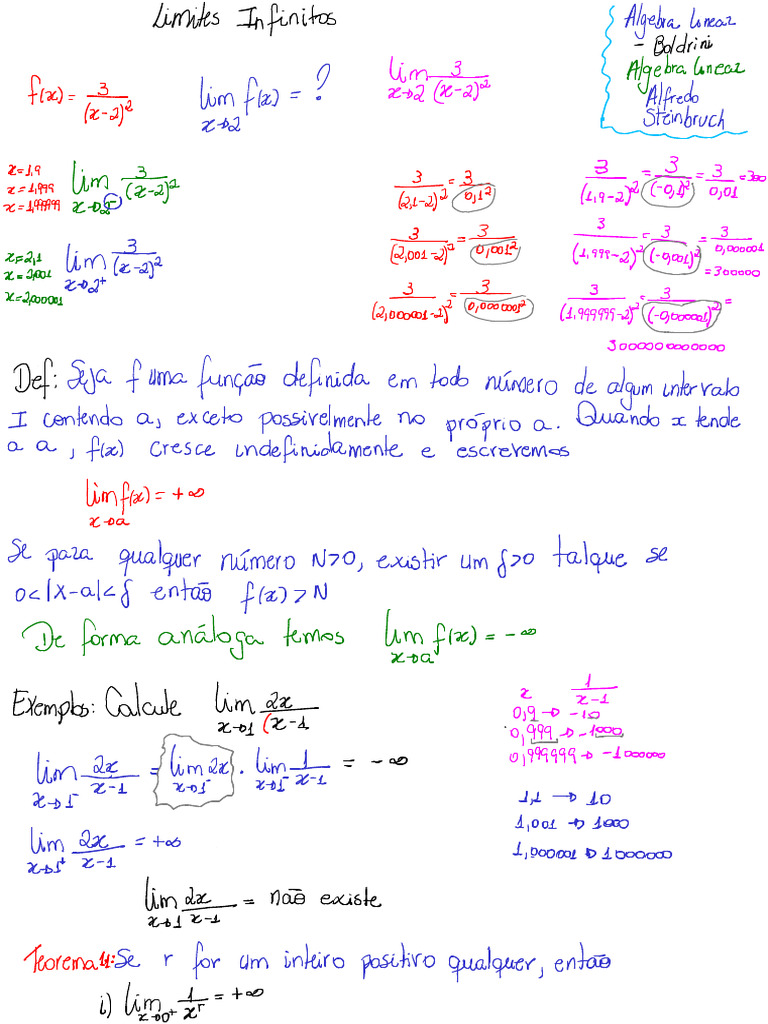 Limites Infinitos
Algebra Linear
- Boldrini
Algebra Linear
Alfredo
Steinbruch
f(x) = 3/(x-2)²
lim x→2 f(x) = ?
lim x→2 3/(x-2)²
x=1,9
x=1,999
x=1,99999
lim x→2⁻ 3/(x-2)²
x=2,1
x=2,001
x=2,000001
lim x→2⁺ 3/(x-2)²
3/(2,1-2)² = 3/0,1²
3/(2,001-2)² = 3/0,001²
3/(2,000001-2)² = 3/0,000001²
3/(1,9-2)² = 3/(-0,1)² = 3/0,01 = 300
3/(1,999-2)² = 3/(-0,001)² = 3/0,000001
= 300000
3/(1,999999-2)² = 3/(-0,000001)² =
3000000000000
Def: Seja f uma função definida em todo número de algum intervalo
I contendo a, exceto possivelmente no próprio a. Quando x tende
a a, f(x) cresce indefinidamente e escrevemos
lim x→a f(x) = +∞
Se para qualquer número N>0, existir um δ>0 tal que se
0<|x-a|<δ então f(x)>N
De forma análoga temos lim x→a f(x) = -∞
Exemplos: Calcule lim x→1 2x/(x-1
x 1/(x-1)
0,9 → -10
0,999 → -1000
0,999999 → -1000000
lim x→1⁻ 2x/(x-1) = lim x→1⁻ 2x · lim x→1⁻ 1/(x-1) = -∞
1,1 → 10
1,001 → 1000
1,000001 → 1000000
lim x→1⁺ 2x/(x-1) = +∞
lim x→1 2x/(x-1) = não existe
Teorema 11: Se r for um inteiro positivo qualquer, então
i) lim x→0⁺ 1/xʳ = +∞